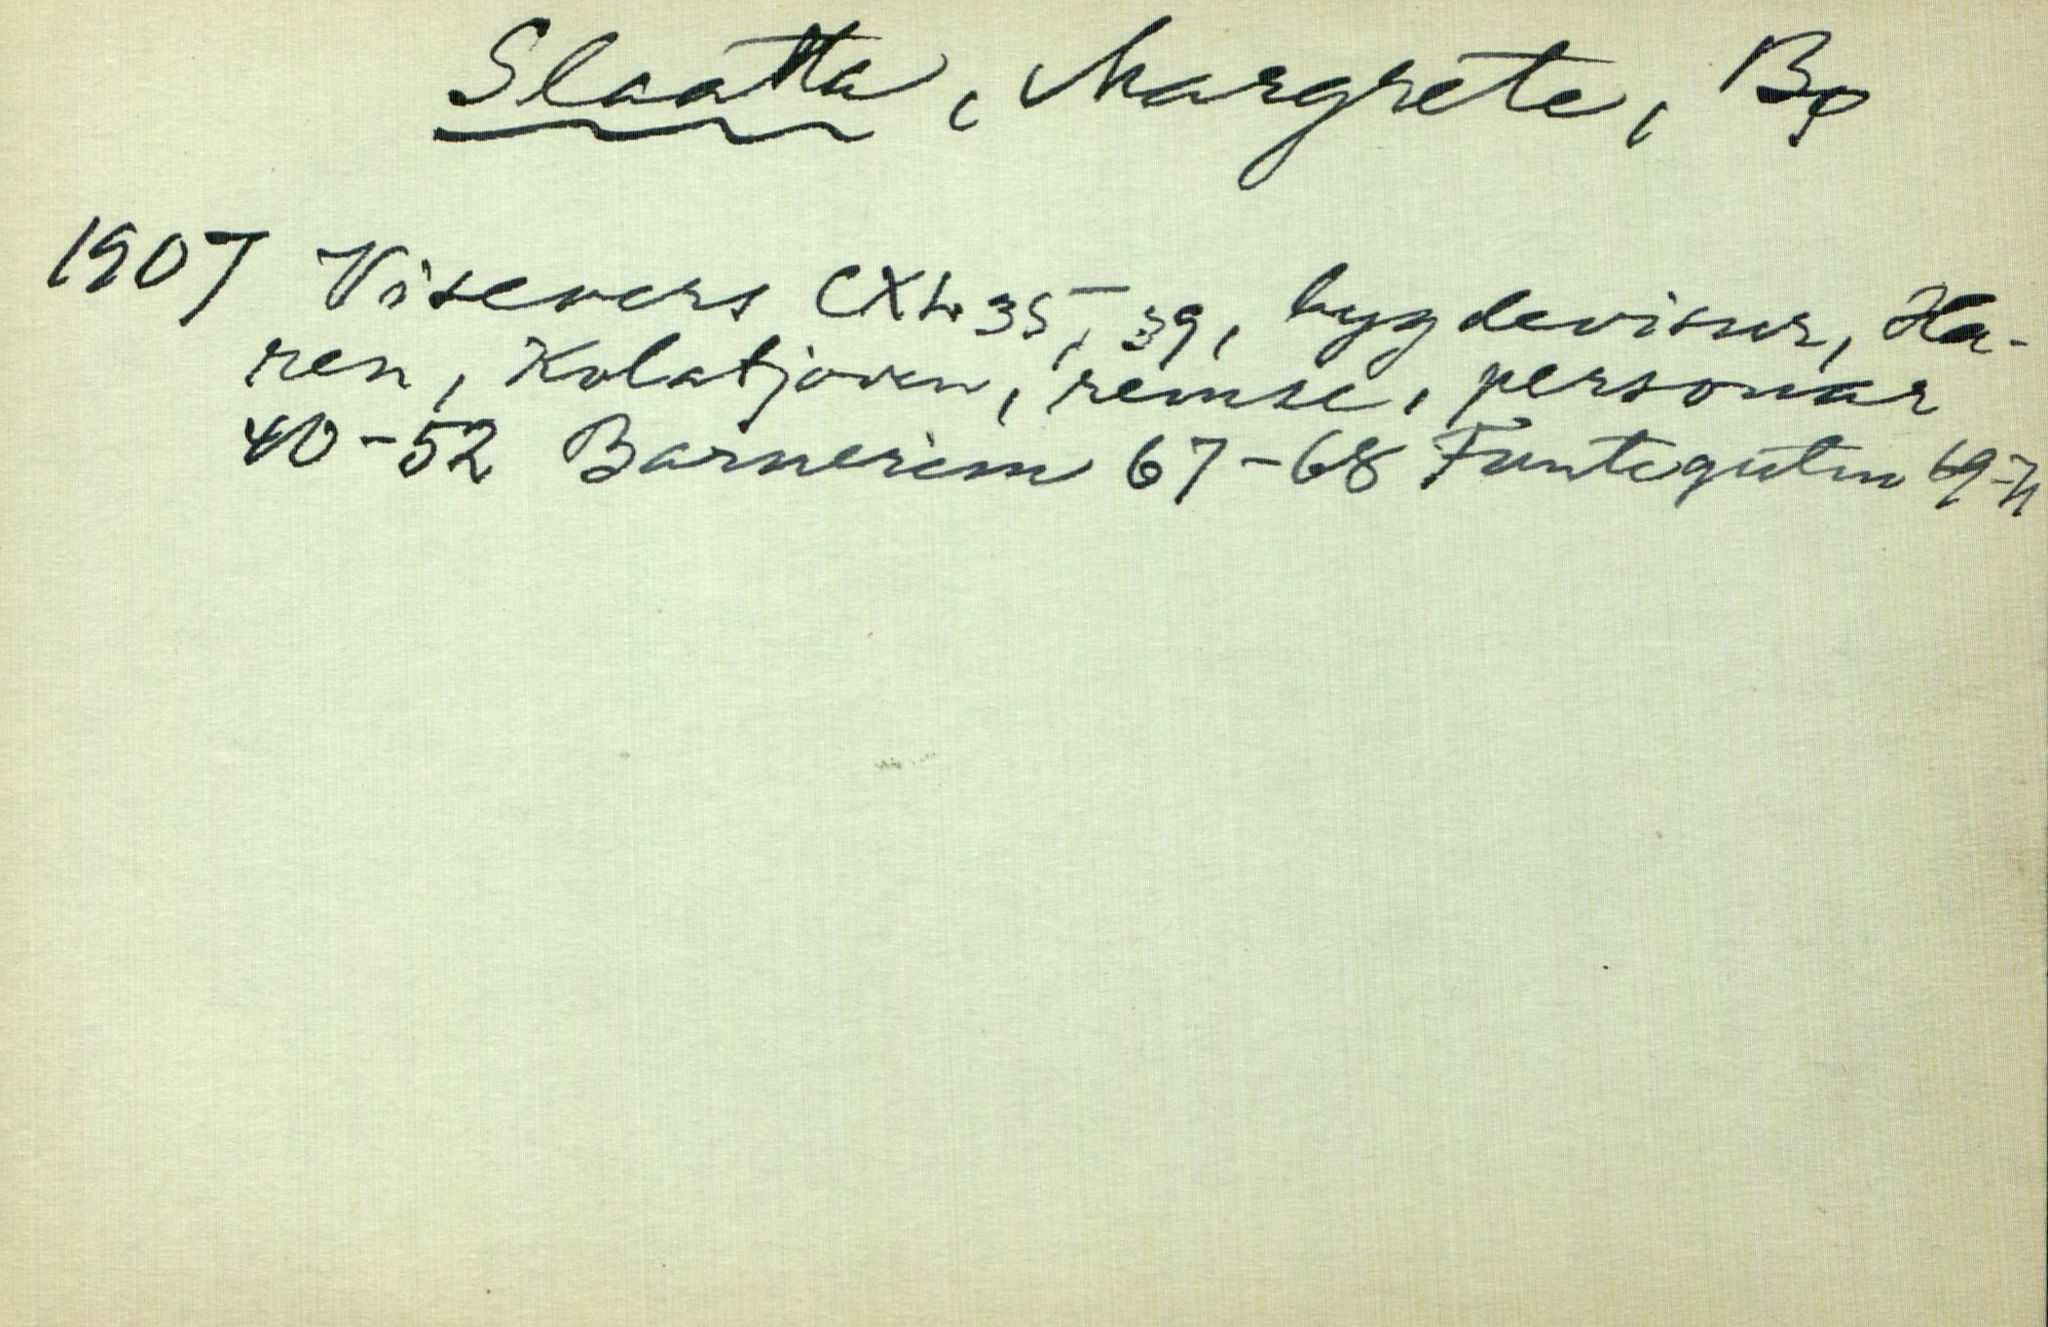 Slaatta, Margrete, Bø
1907 Visevers CXL 35, 39, bygdevisur, Ha-
ren, Kolabjørnen, remse, personar
40-52 Barnerim 67-68 Fanteguten 69-71